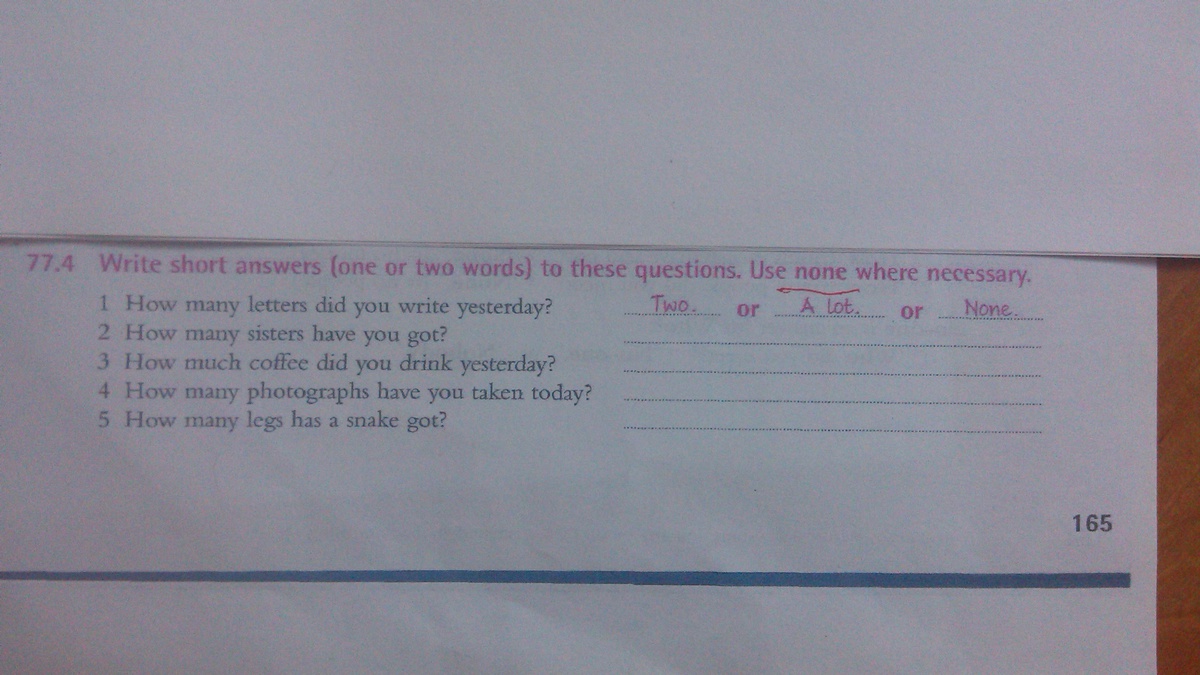 77.4 Write short answers (one or two words) to these questions. Use none where necessary.
1 How many letters did you write yesterday? Two. or A lot. or None.
2 How many sisters have you got?
3 How much coffee did you drink yesterday?
4 How many photographs have you taken today?
5 How many legs has a snake got?
165